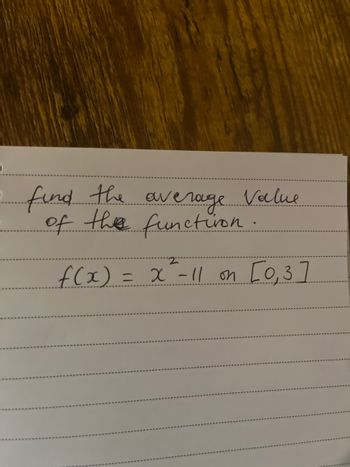 find the average value
of the function.
f(x) = x²-11 on [0,3]